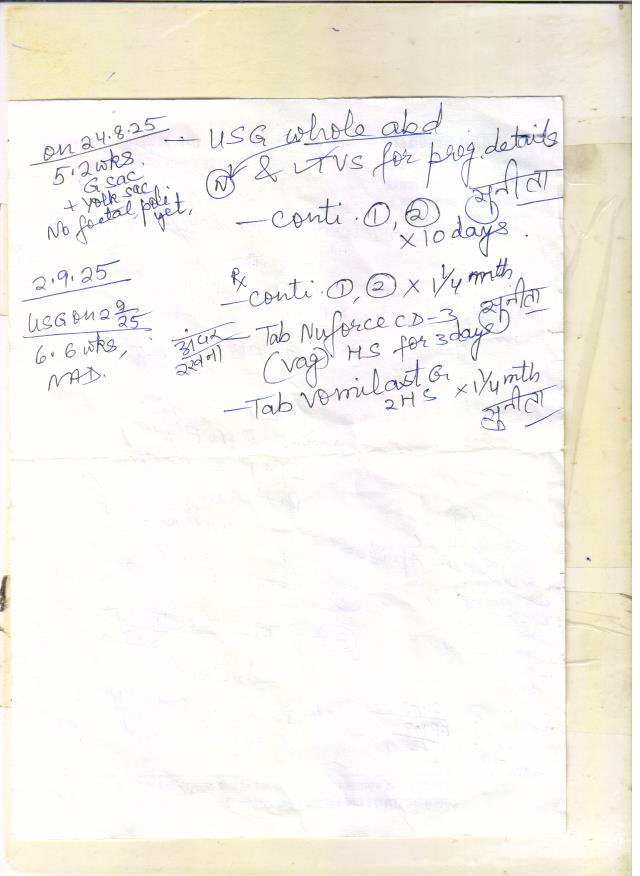 on 24.8.25
5.2 wks.
G sac
+ Yolk sac
No foetal pole
yet.
— USG whole abd
(N) & ✓TVS for preg. details
सुनीता
— conti. ①, ②
× 10 days.
2.9.25
USG on 2 9/25
6.6 wks,
NAD.
Rx
— conti. ①, ② × 1¼ mth
सुनीता
अंदर
रखना
— Tab Nuforce CD-3
(vag) HS for 3 days
— Tab Vomilast G
2 HS × 1¼ mth
सुनीता